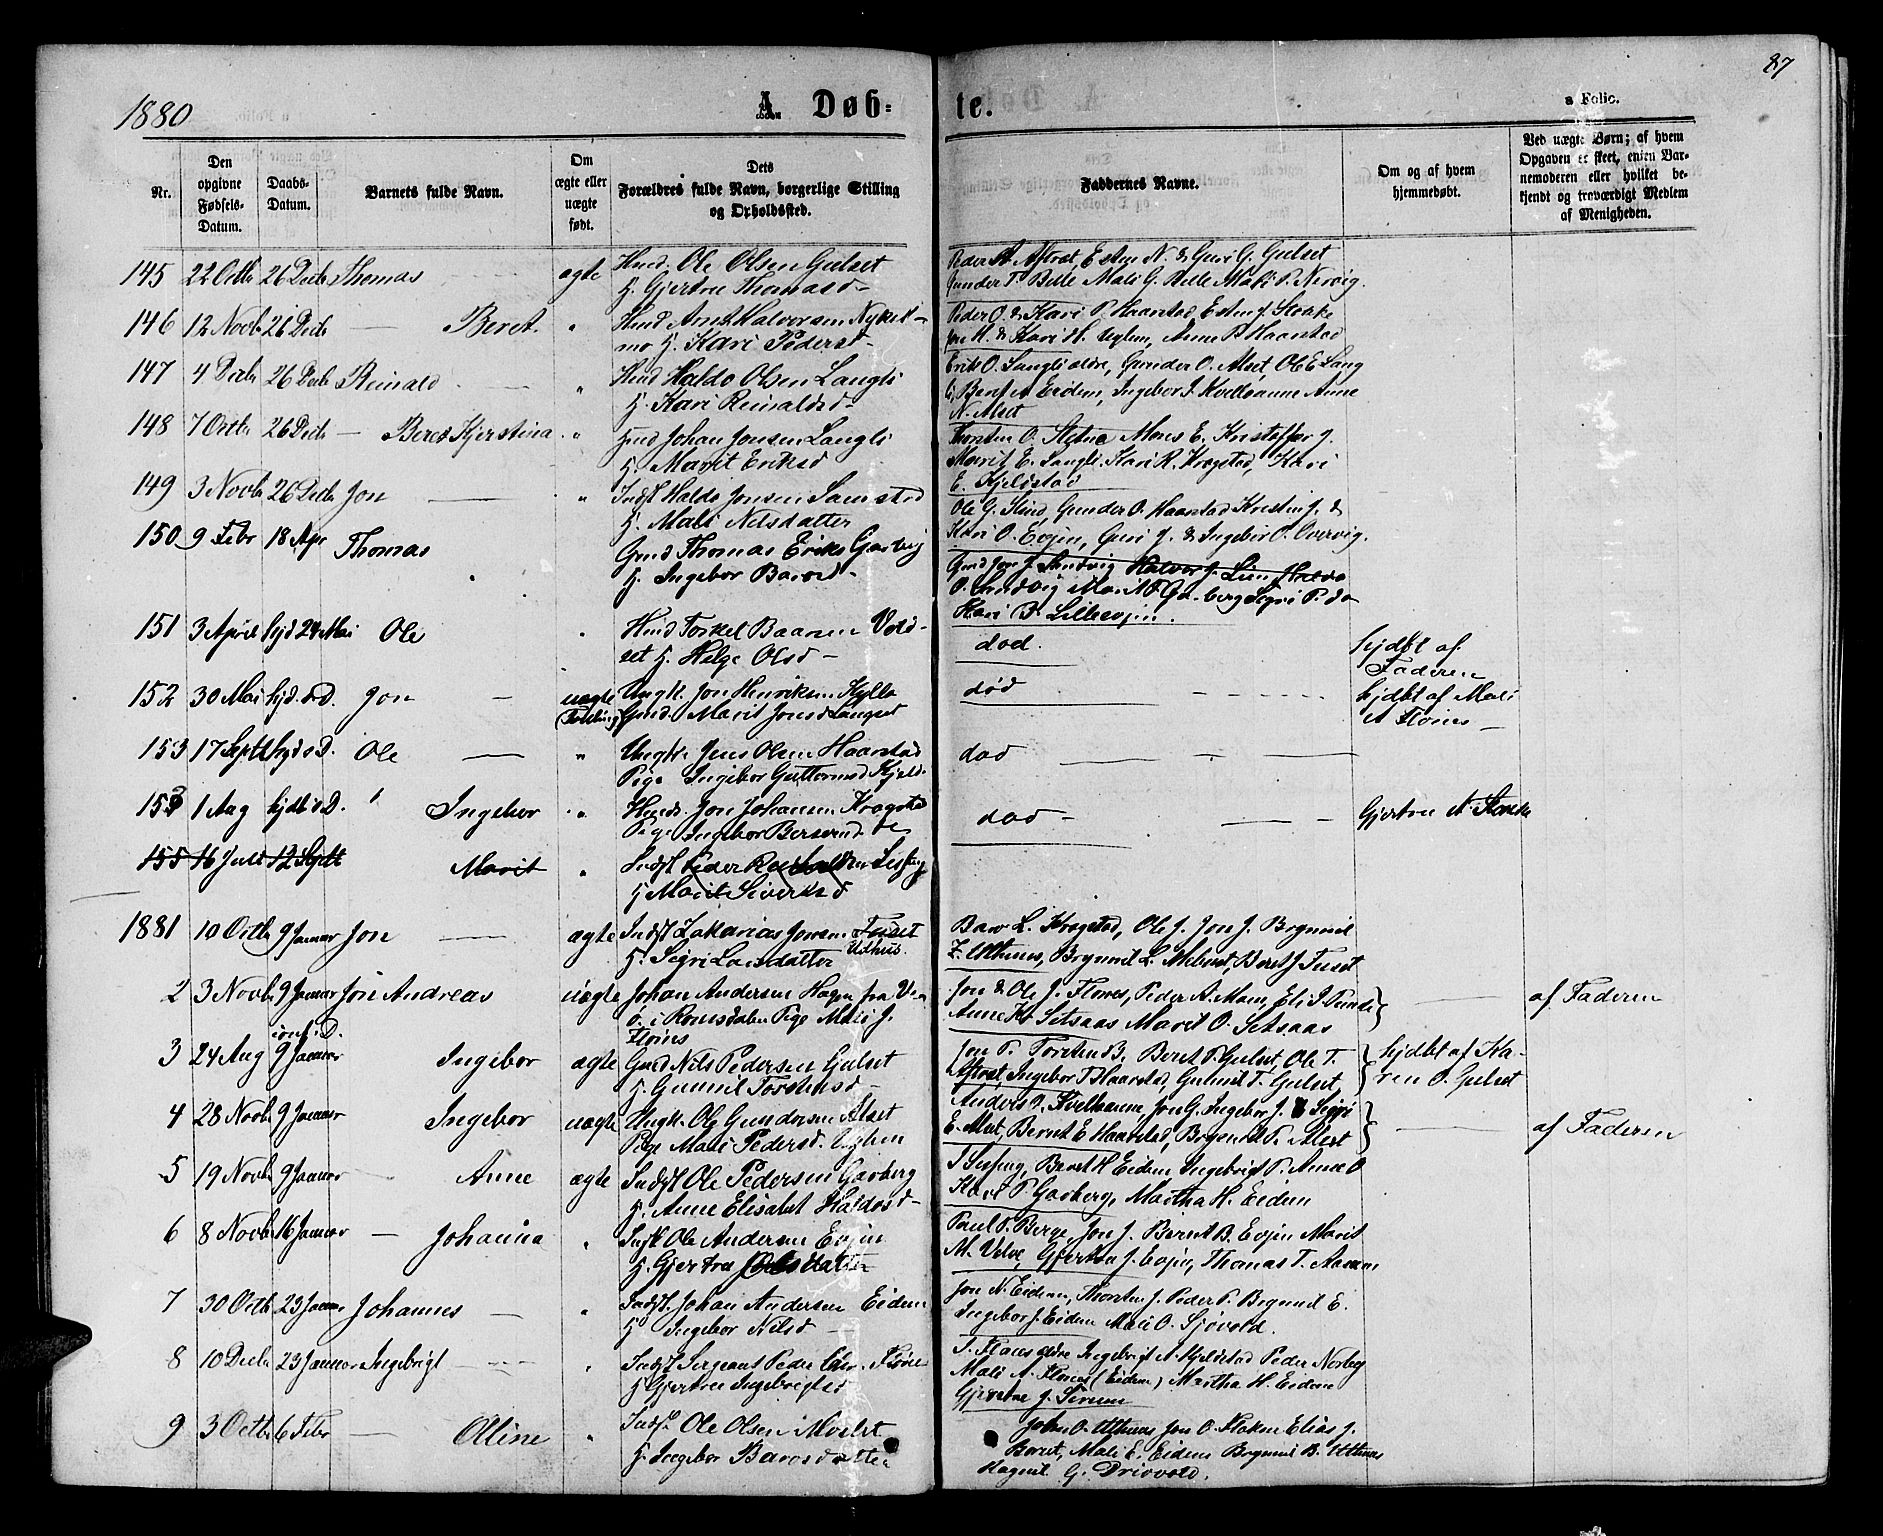 87
1880
A. Døb-
te.
a Folio.
Nr.
Den opgivne Fødsels-Datum.
Daabs-Datum.
Barnets fulde Navn.
Om ægte eller uægte født.
Dets Forældres fulde Navn, borgerlige Stilling og Opholdssted.
Faddernes Navne.
Om og af hvem hjemmedøbt.
Ved uægte Børn; af hvem Opgaven er skeet, enten Barnemoderen eller hvilket bekjendt og troværdigt Medlem af Menigheden.
145 22 Octb 26 Decb Thomas ægte Hmd. Ole Olsen Gulset
H. Gjertru Thomasd
Gunder T. Belle Mali G. Belle
146 12 Novb 26 Decb — Beret " Hmd Arnt Halvorsen Nykel-
mo H. Kari Pedersd
Peder O. & Kari P. Haarstad
& Kari H. Uglem, Anne P. Haarstad
147 4 Decb 26 Decb Reinald " Hmd Haldo Olsen Langli
H. Kari Reinaldsd
Erik O. Langli ældre, Gunder O. Alset, Ole E. Lang
Beret A. Eidem, Ingebor J. Kvelloanne Anne
N. Alset
148 7 Octb 26 Decb — Beret Kjerstina " Johan Jonsen Langli
H. Marit Eriksd
Thorsten O. Mones E. Kristoffer J.
Marit E. Langli. Kari R. Kragstad, Kari
E. Kjelstad
149 3 Novb 26 Decb Jon — " Indst Haldo Jonsen Samstad
H. Mali Nilsdatter
Ole G. Gunder O. Haarstad Kristin J. &
Kari O. Evjen, Guri J. & Ingebor O. Overvig.
150 9 Febr 18 Apr Thomas Gmd Thomas Eriks Garberg
H. Ingebor Baarsd
Gmd Jon J. Sandvig Halvor J. Lien Haldo
O. Sandvig
Kari B. Lilleevjen.
151 3 April hjd 24 Mai Ole " Hmd Torkel Baarsen Vold-
set H. Helge Olsd — død.
hjdbt af
Faderen
152 30 Mai hjd. s D. Jon — uægte Ungk. Jon Henriksen Kyllo
Gmd. Marit Jonsd Langset
død
hjdbt af Mali
A Flønes
153 17 Septb hjd s D. Ole — " Ungk. Jens Olsen Haarstad
Pige Ingebor Guttormsd Kjels.
død — —
153 1 Aug hjdbt s D. " Ingebor " Hmds. Jon Johansen Kragsta
Pige Ingebor Bersvend
død — — —
Gjertru A. Stokke
155 16 Juli 12 Septb Marit " Indst Peder Selsbg
H. Marit Siverksd
1881 10 Octb 9 Januar Jon — ægte Indst Zakarias Joversen Tuset
Uthus.
H. Segri Larsdatter
Baro L. Kragstad, Ole J. Jon J. Brynnil
Z. Uthuus, Brynnil L. Melset, Beret J. Tuset
2 3 Novb 9 Januar Jon Andreas uægte Johan Andersen Hagen fra
i Romsdalen Pige Mali J.
Flønes
Jon & Ole J. Flønes, Peder A. Mam, Eli J.
Anne Kr Setsaas Marit O. Setsaas
— af Faderen
conf. i D.
3 24 Aug 9 Januar Ingebor ægte Gmd Nils Pedersen Gulset
H. Gunnil Torstensd —
Jon P. Torsten B. Beret P. Gulset, Ole T.
Aftret, Ingebor T. Haarstad, Gunnil T. Gulset
hjdbt af Ka-
ren O. Gulset
4 28 Novb 9 Januar Ingebor uægte Ungk. Ole Gundersen Alset
Pige Mali Pedersd. Uglem
Anders O. Kvelhaune, Jon G. Ingebor J. & Segri
E. Alset, Beret E. Haarstad, Brynnil P. Alset
— af Faderen
5 19 Novb 9 Januar — Anne ægte Indst Ole Pedersen Garberg
H. Anne Elisabet Haldosd —
Beret H Eidem Ingebrigt P. Anne O
Kari P. Garberg, Martha H. Eidem
6 8 Novb 16 Januar — Johanna " Indst Ole Andersen Evjen
H. Gjertru Olsdatter
Paul P. Berge, Jon J. Bernt B. Evjen Marit
M. Velve, Gjertru J. Evjen, Thomas T. Aasen
7 30 Octb 23 Januar Johannes — " Indst. Johan Andersen Eidem
H. Ingebor Nilsd —
Jon N. Eidem, Thorsten J. Peder P. Brynnil E.
Ingebor J. Eidem Mali O. Sjovold.
8 10 Decb 23 Januar Ingebrigt — " Indst Sergeant Peder Flønes
H. Gjertru Ingebrigtsd
Flønes ældre Ingebrigt A. Kjelstad Peder Norbey
Mali A. Flønes (Eidem) Martha H. Eidem
Gjertru J.
9 3 Octb 6 Febr — Oline " Indst. Ole Olsen Moslet
H. Ingebor Baarsdatter
John O. Uthuus Jon O. Elias J.
Beret, Mali E. Eidem Brynnil B. Uthuus
Magnil G. Drivvold.